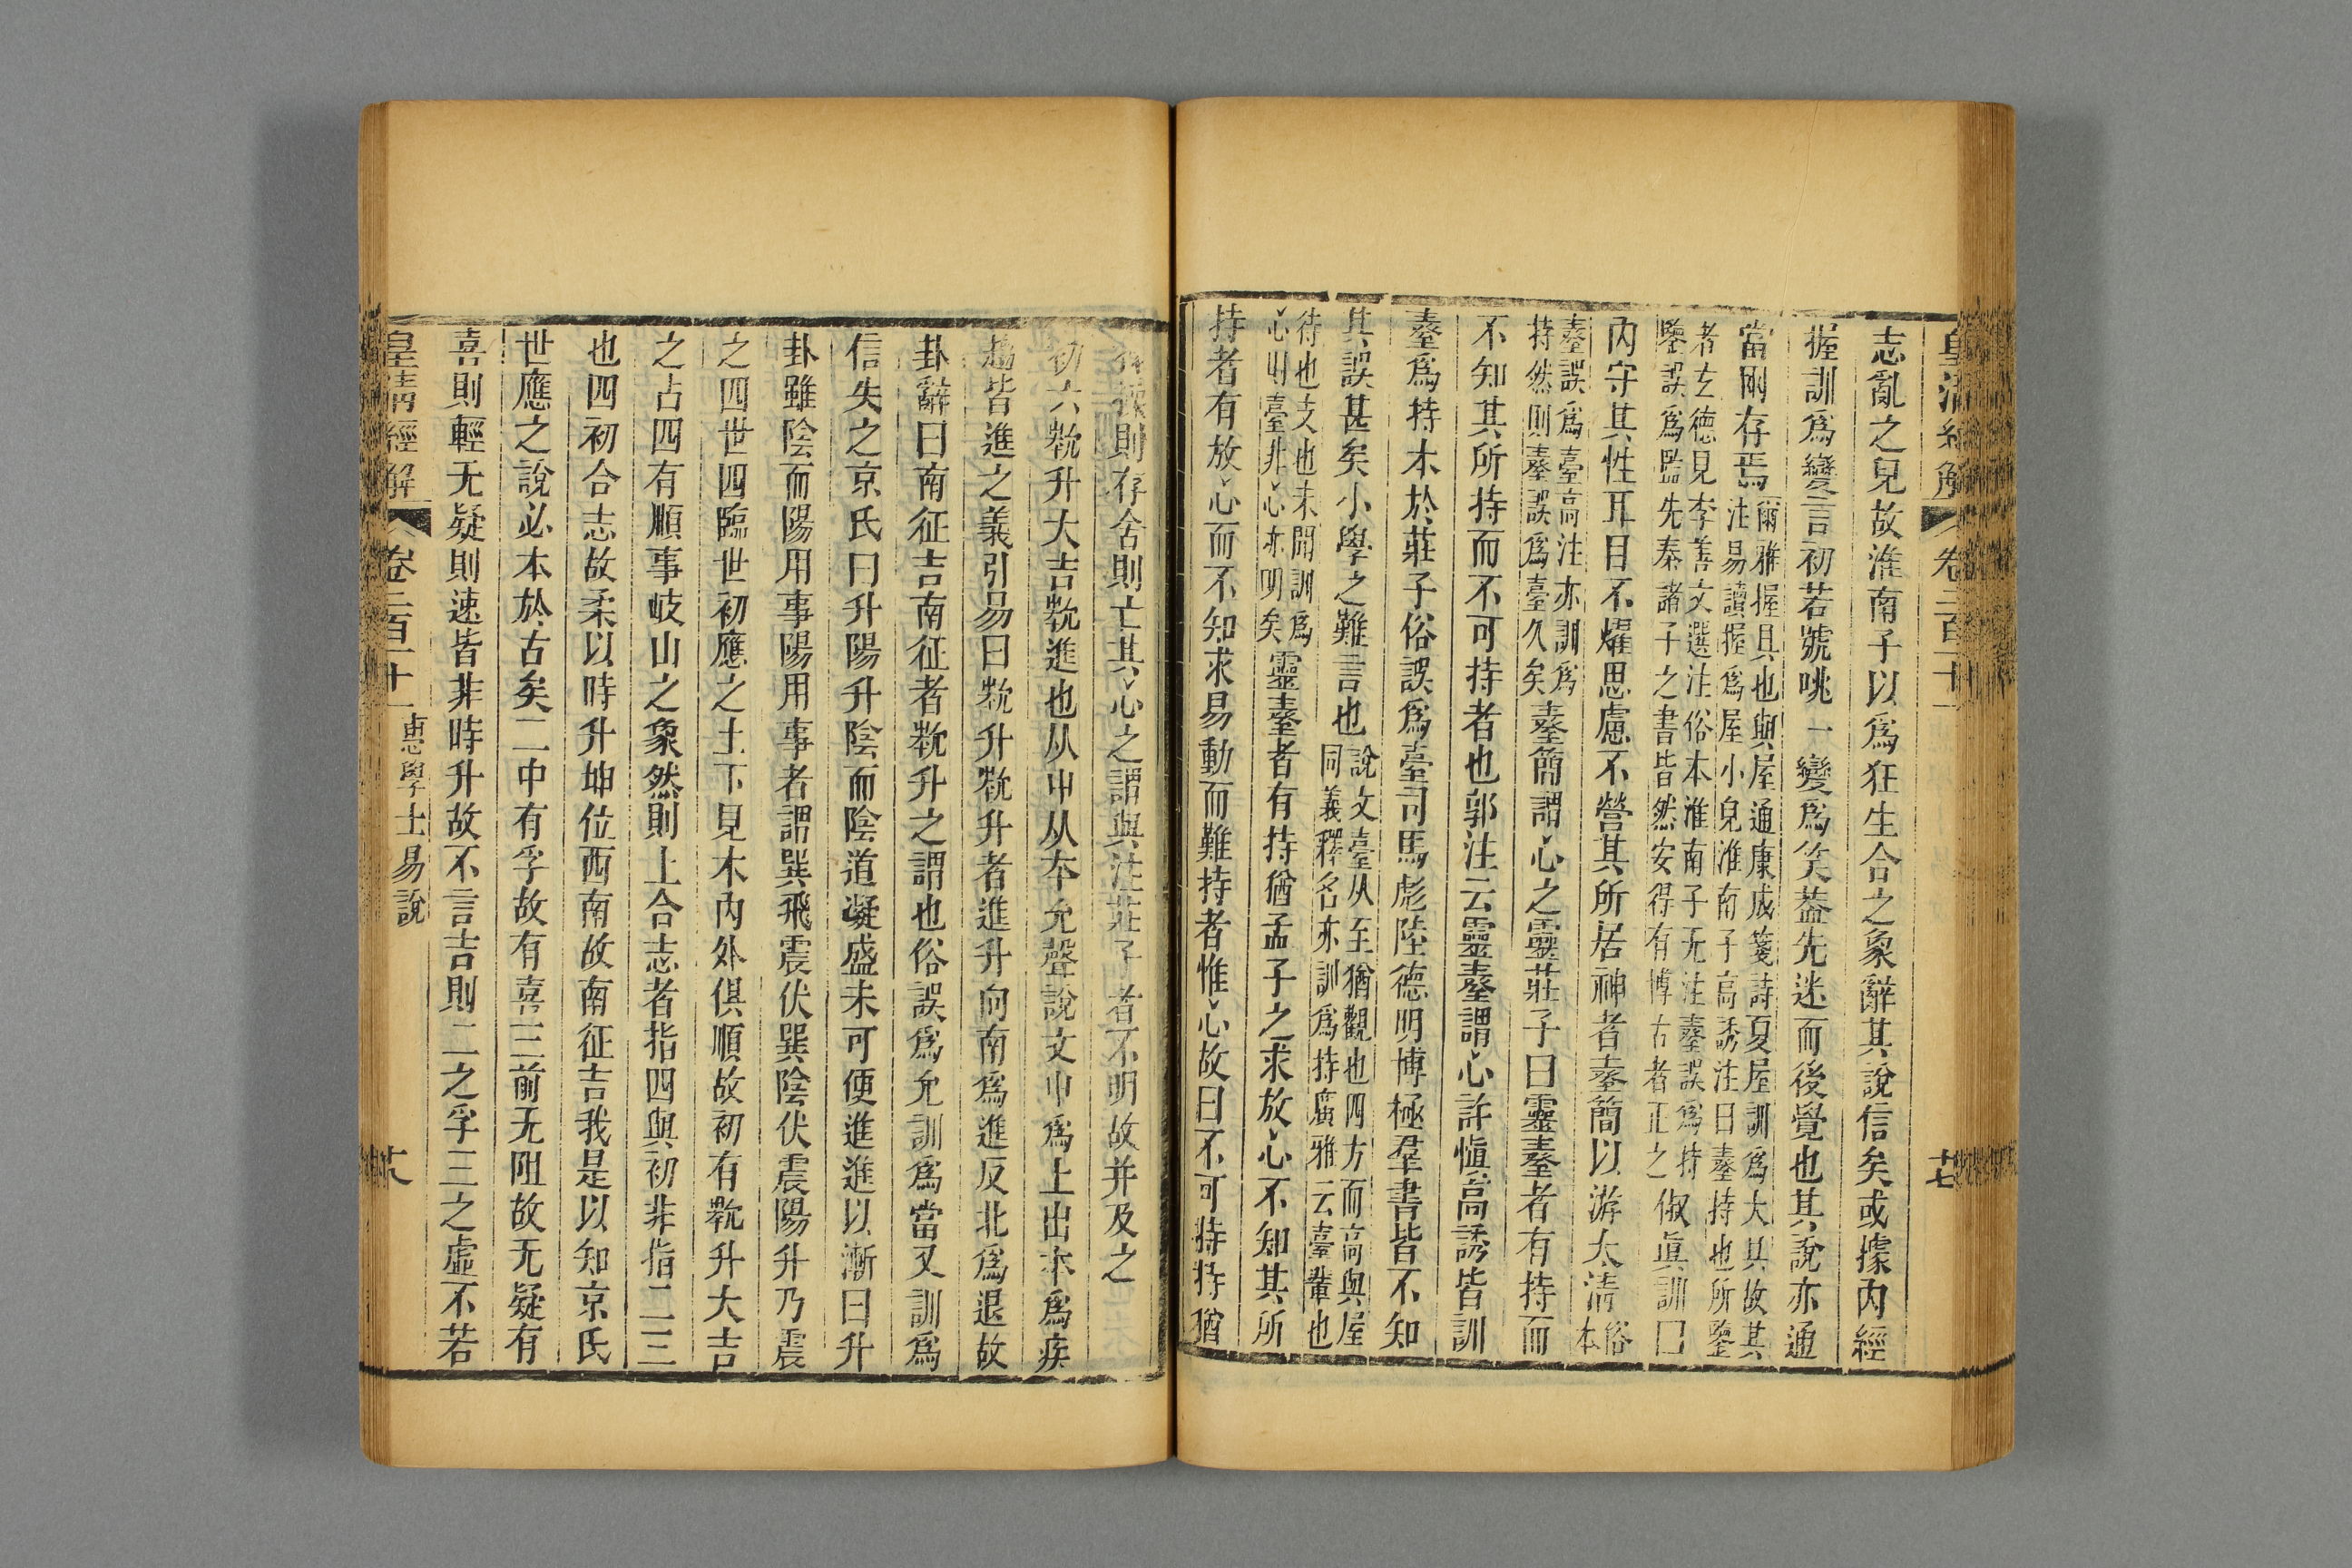 皇清經解 卷二百十一 十七
志亂之皃故淮南子以爲狂生合之象辭其說信矣或據內經
握訓爲變言初若號咷一變爲笑葢先迷而後覺也其說亦通
當刪存焉爾雅握具也與屋通康成箋詩夏屋訓爲大具故其
注易讀握爲屋小皃淮南子高誘注曰䑓持也所鑒
者玄德見李善文選注俗本淮南子无注䑓誤爲持
鑒誤爲監先秦諸子之書皆然安得有博古者正之俶眞訓曰
內守其性耳目不燿思慮不營其所居神者䑓簡以游太淸俗本
䑓誤爲臺高注亦訓爲
持然則䑓誤爲臺久矣䑓簡謂心之靈莊子曰靈䑓者有持而
不知其所持而不可持者也郭注云靈䑓謂心許愼高誘皆訓
䑓爲持本於莊子俗誤爲臺司馬彪陸德明博極羣書皆不知
其誤甚矣小學之難言也說文臺从至猶觀也四方而高與屋
同義釋名亦訓爲持廣雅云臺輩也
待也支也未聞訓爲
心則臺非心亦明矣靈䑓者有持猶孟子之求放心不知其所
持者有放心而不知求易動而難持者惟心故曰不可持持猶
操則存舍則亡其心之謂與注莊子者不明故并及之
初六㽙升大吉㽙進也从屮从夲允聲說文屮爲上出夲爲疾
趨皆進之義引易曰㽙升㽙升者進升向南爲進反北爲退故
卦辭曰南征吉南征者㽙升之謂也俗誤爲允訓爲當又訓爲
信失之京氏曰升陽升陰而陰道凝盛未可便進進以漸曰升
卦雖陰而陽用事陽用事者謂巽飛震伏巽陰伏震陽升乃震
之四世四臨世初應之土下見木內外俱順故初有㽙升大吉
之占四有順事岐山之象然則上合志者指四與初非指二三
也四初合志故柔以時升坤位西南故南征吉我是以知京氏
世應之說必本於古矣二中有孚故有喜三前无阻故无疑有
喜則輕无疑則速皆非時升故不言吉則二之孚三之虛不若
皇清經解 卷二百十一 惠學士易說 十八